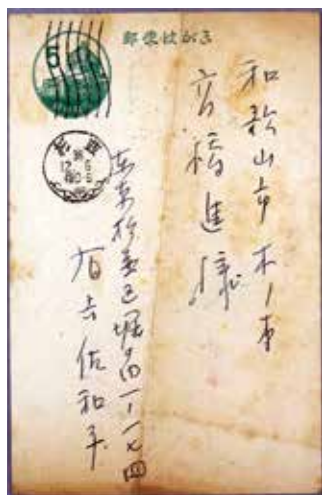 郵便はがき
和歌山市木ノ本
高橋進様
東京杉並区堀ノ内一ノ一七四
有吉佐和子